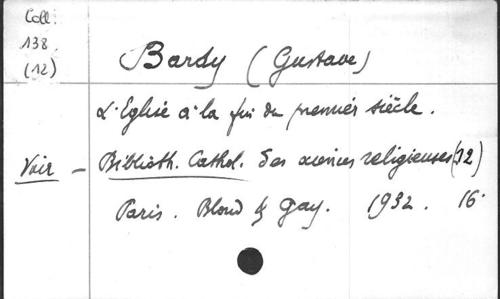 Coll:
138.
(12)
Bardy (Gustave)
L'Eglise à la fin du premier siècle.
Voir - Biblioth. Cathol. des sciences religieuses (12)
Paris. Bloud & Gay. 1932. 16°